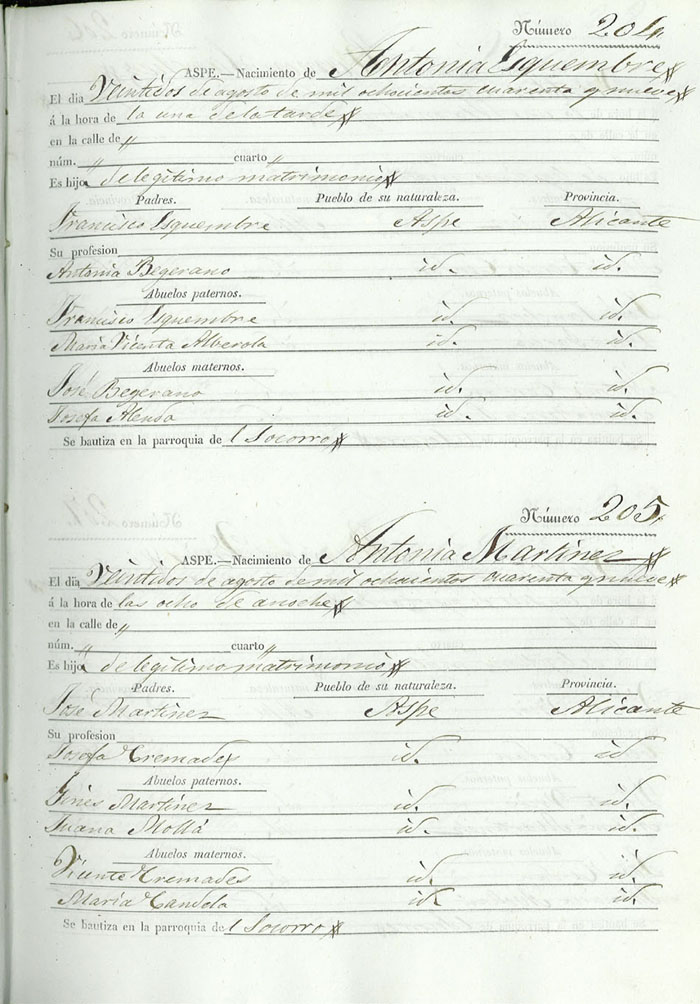 Número 204
ASPE.—Nacimiento de Antonia Esquembre
El dia Veintidos de agosto de mil ochocientos cuarenta y nueve
á la hora de la una de la tarde
en la calle de „
núm. „ cuarto „
Es hija de legítimo matrimonio
Padres. Pueblo de su naturaleza. Provincia.
Francisco Esquembre Aspe Alicante
Su profesion
Antonia Begerano id. id.
Abuelos paternos.
Francisco Esquembre id. id.
María Vicenta Alberola id. id.
Abuelos maternos.
José Begerano id. id.
Josefa Alenda id. id.
Se bautiza en la parroquia de l Socorro
Número 205
ASPE.—Nacimiento de Antonia Martinez
El dia Veintidos de agosto de mil ochocientos cuarenta y nueve
á la hora de las ocho de anoche
en la calle de „
núm. „ cuarto „
Es hija de legítimo matrimonio
Padres. Pueblo de su naturaleza. Provincia.
José Martinez Aspe Alicante
Su profesion
Josefa Cremades id. id
Abuelos paternos.
Ginés Martinez id. id.
Juana Mollá id. id.
Abuelos maternos.
Vicente Cremades id. id.
María Candela id. id.
Se bautiza en la parroquia de l Socorro